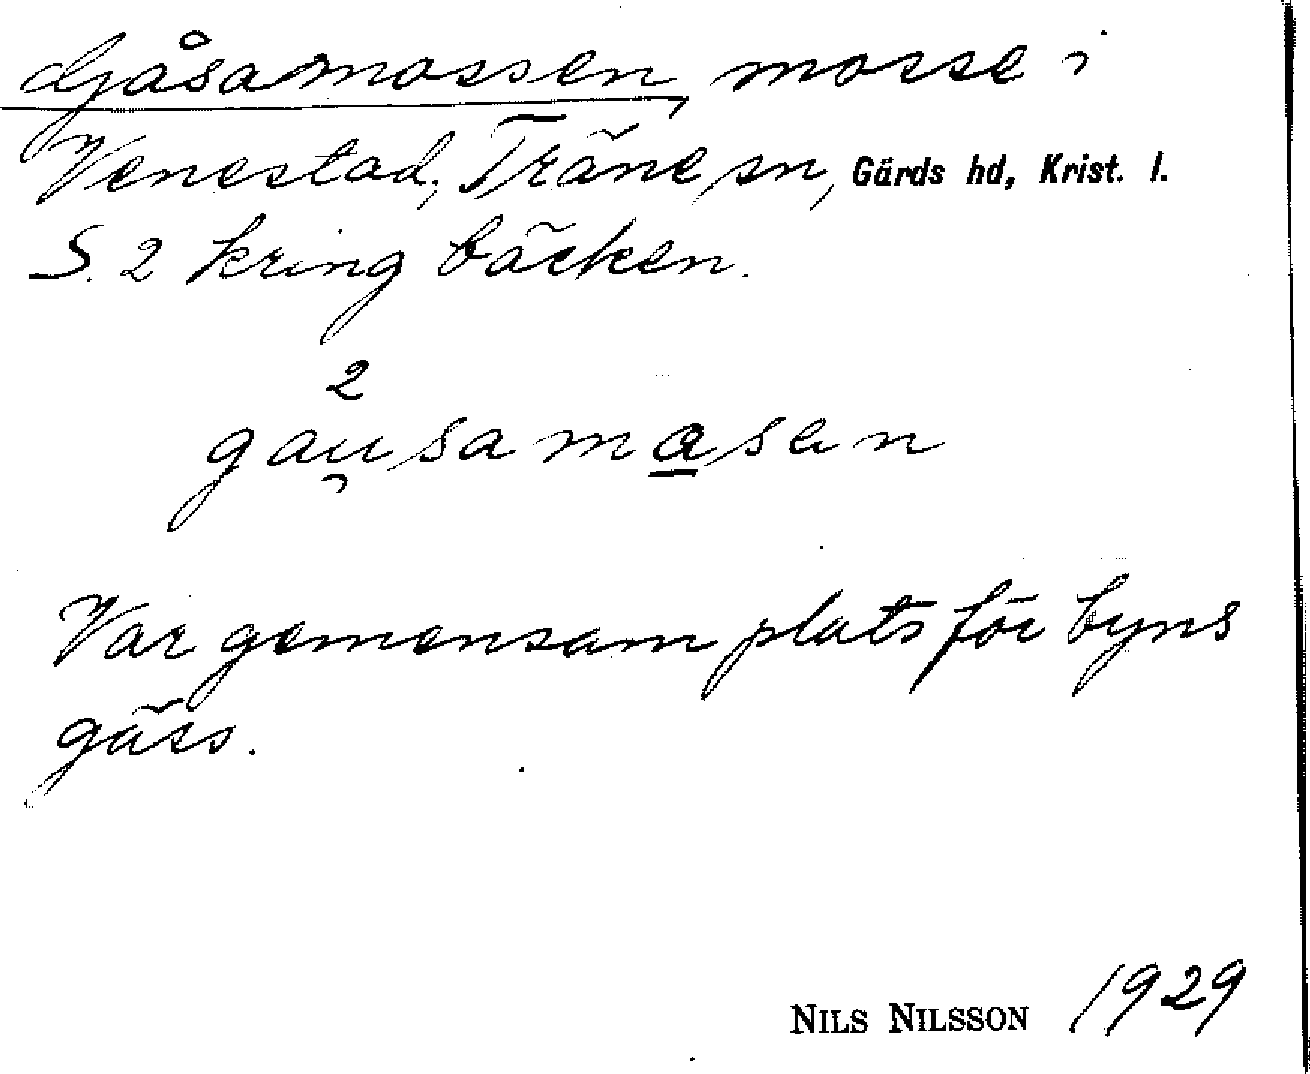 Gåsamossen, mosse i
Venestad, Träne sn, Gärds hd, Krist. l.
S. 2 kring bäcken.
2
gau̯samasen
Var gemensam plats för byns
gäss.
NILS NILSSON 1929